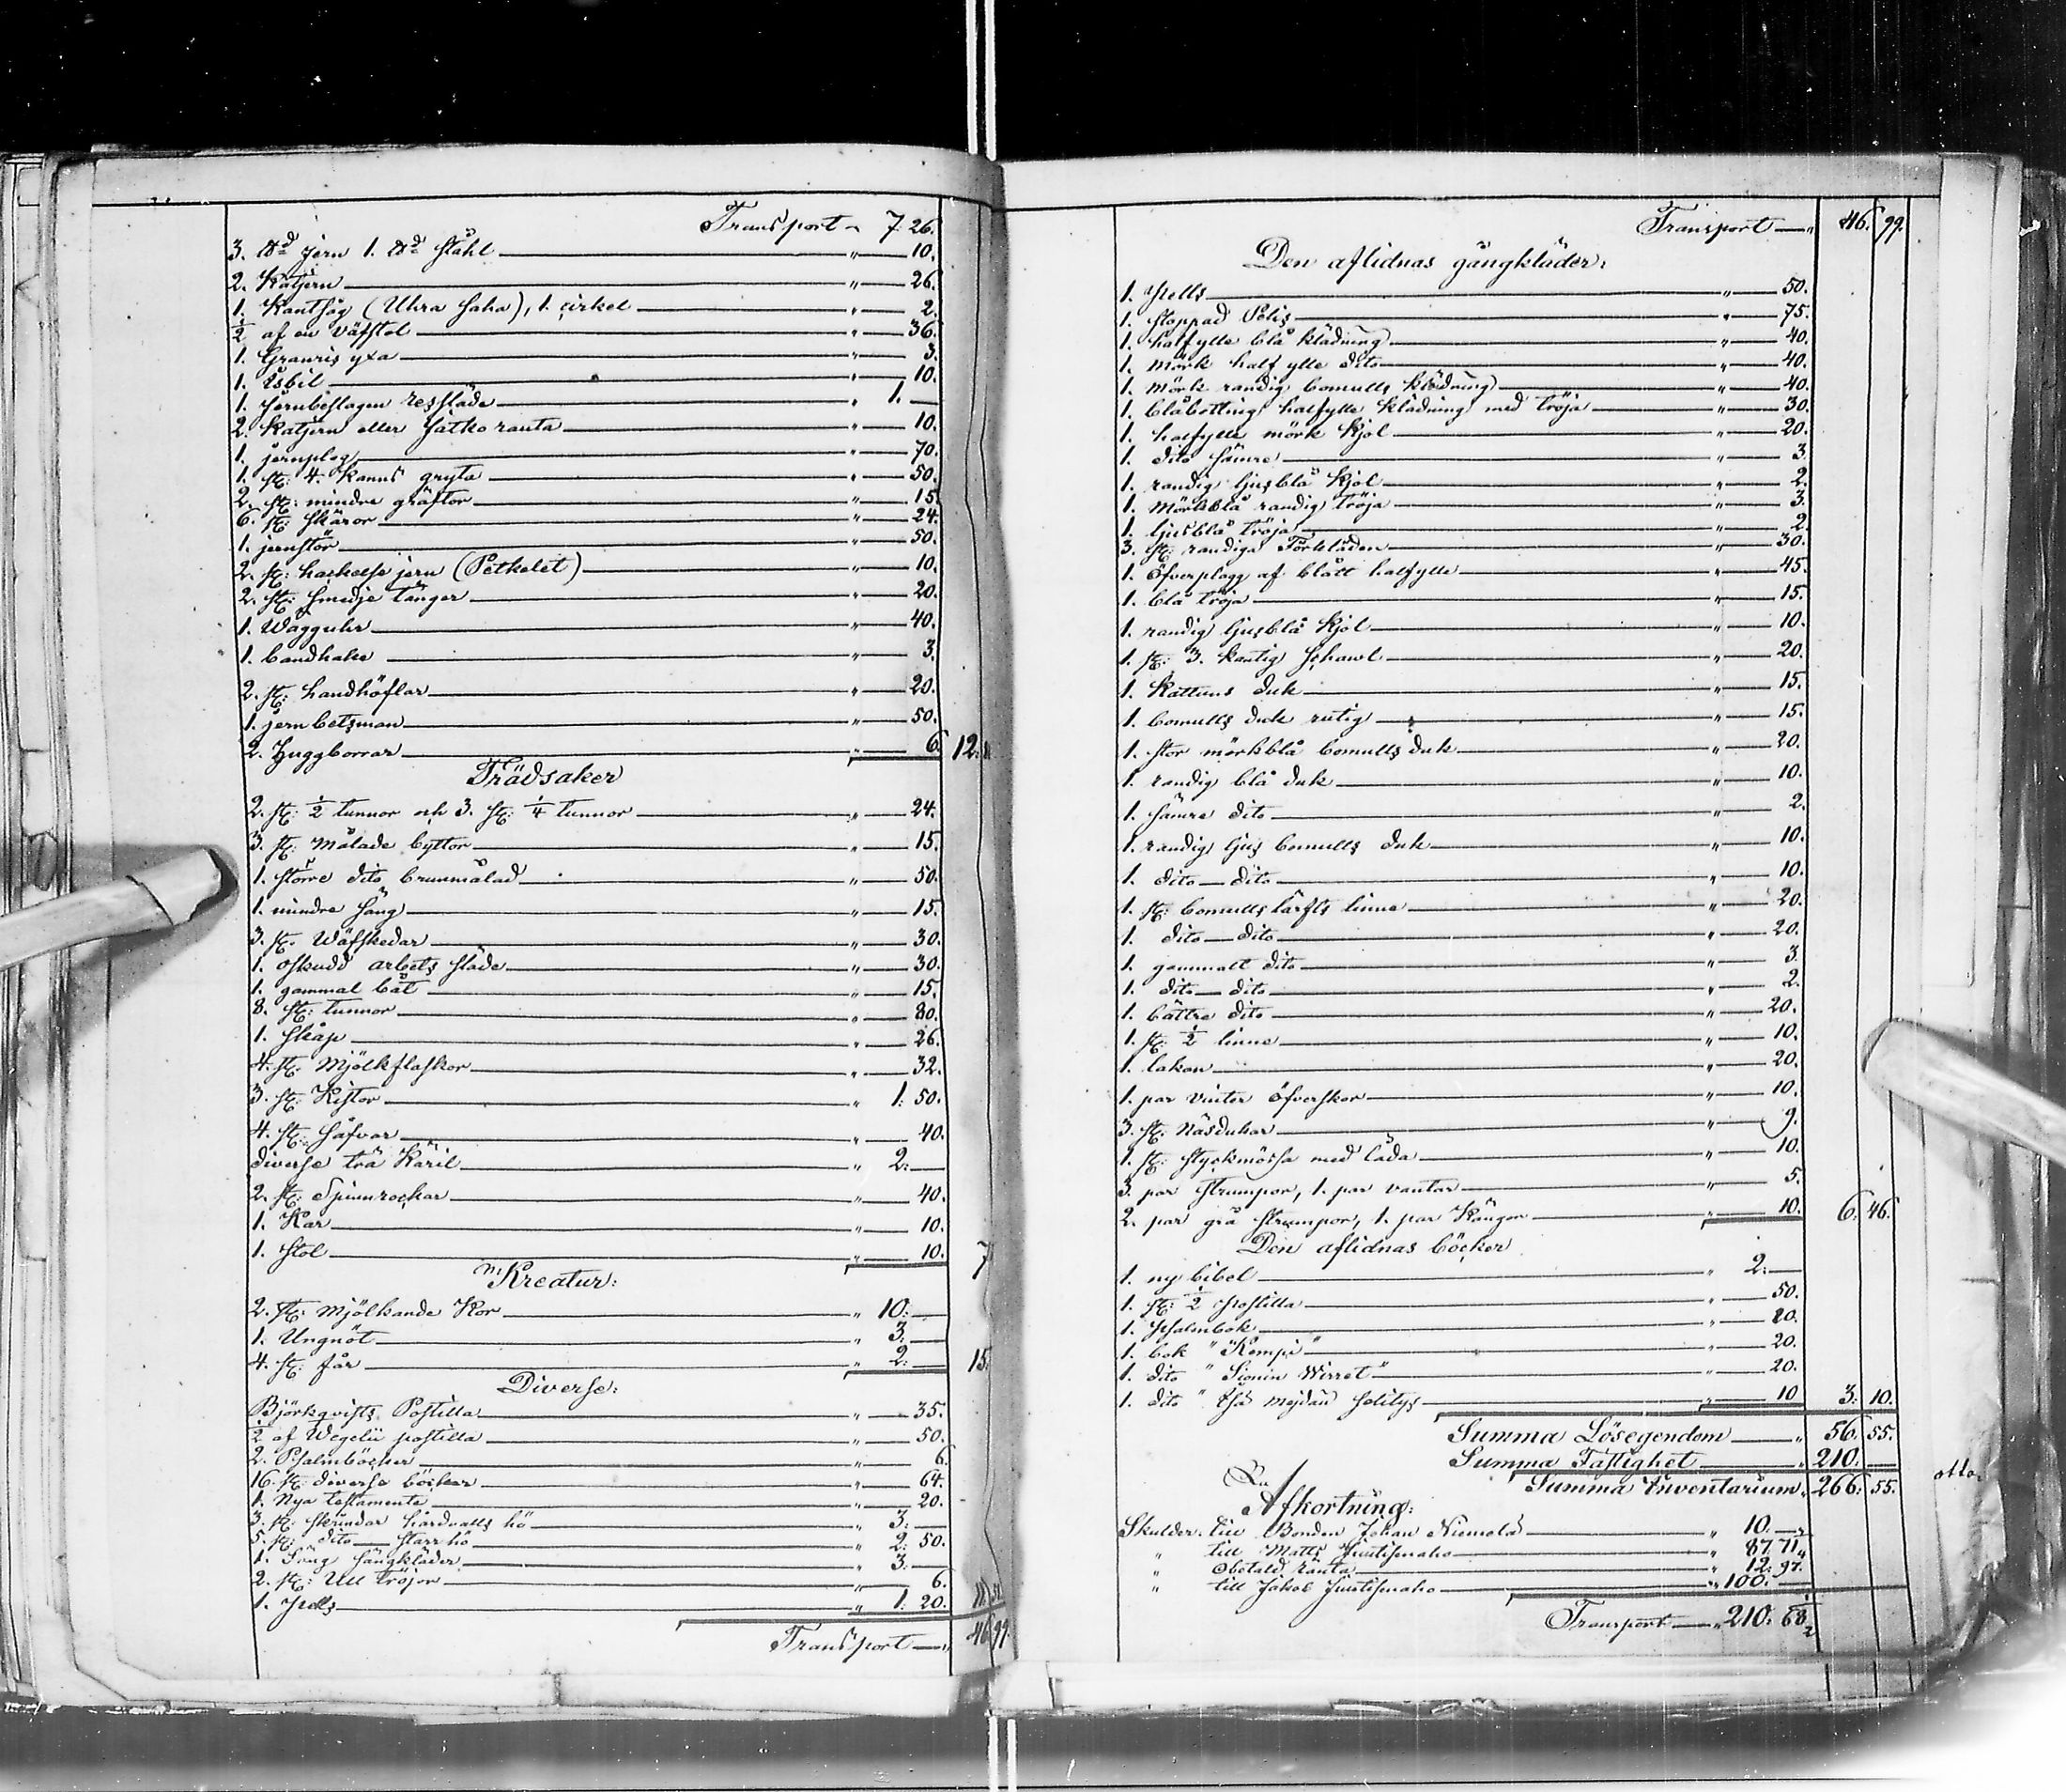 Transport " 7. 26.
3. ℔d jern 1. ℔d stahl " 10.
2. Katjern " 26.
1. Kantsåg (Uhra saha), 1. cirkel " 2.
½ af en väfstol " 36.
1. Granris yxa " 3.
1. Isbil " 10.
1. Jernbeslagen resslade " 1.
2. Katjern eller jatko rauta " 10.
1. jernplog " 70.
1. st: 4. kanns gryta " 50.
2. st: mindre grÿtor " 15.
6. st: Skäror " 24.
1. jernstör " 50.
2. st: hackelse jern (Petkelet) " 10.
2. st: smedje tänger " 20.
1. Wägguhr " 40.
1. bandhake " 3.
2. st: handhöflar " 20.
1. jern betsman " 50.
2. Huggborrar " 6. 12.
Trädsaker
2. st: ½ tunnor och 3. st: ¼ tunnor " 24.
3. st: Målade byttor " 15.
1. större dito brunmålad " 50.
1. mindre säng " 15.
3. st. Wäfskedar " 30.
1. oskodd arbets släde " 30.
1. gammal båt " 15.
8. st: tunnor " 80.
1. Skåp " 26.
4. st: Mjölkflaskor " 32.
3. st: Kistor " 1. 50.
4. st: såfvar " 40.
diverse trä Käril " 2.
2. st: Spinnrockar " 40.
1. Kar " 10.
1. Stol " 10. 7
Kreatur:
2. st: Mjölkande Kor " 10.
1. Ungnöt " 3.
4. st: får " 2. 15.
Diverse:
Björkqvists Postilla " 35.
½ af Wegelii postilla " 50.
2. Psalmböcker " 6.
16. st: diverse böcker " 64.
1. Nya testamente " 20.
3. st: skrindor hårdvalls hö " 3.
5. st: dito starr hö " 2. 50.
1. Säng sängkläder " 3.
2. st: Ull tröjor " 6.
1. Pells " 1. 20. 11.
Transport " 46 99.
Transport " 46. 99.
Den aflidnas gångkläder:
1. Pells " 50.
1. stoppad Pelis " 75.
1. halfylle blå klädning " 40.
1. mörk half ylle dito " 40.
1. mörk randig bomulls klädning " 40.
1. blåbottnig halfylle klädning med tröja " 30.
1. halfylle mörk kjol " 20.
1. dito sämre " 3.
1. randig ljusblå kjol " 2.
1. Mörkblå randig tröja " 3.
1. ljusblå tröja " 2.
3. st: randiga Förkläden " 30.
1. Öfverplagg af blått halfylle " 45.
1. blå tröja " 15.
1. randig ljusblå kjol " 10.
1. st: 3. kantig schawl " 20.
1. Kattuns duk " 15.
1. bomulls duk rutig " 15.
1. stor mörkblå bomulls duk " 20.
1. randig blå duk " 10.
1. sämre dito " 2.
1. randig ljus bomulls duk " 10.
1. dito dito " 10.
1. st: bomullslärfts linne " 20.
1. dito dito " 20.
1. gammalt dito " 3.
1. dito dito " 2.
1. bättre dito " 20.
1. st: ½ linne " 10.
1. lakan " 20.
1. par vinter öfverskor " 10.
3. st: Näsdukar " 9.
1. st: styckmössa med låda " 10.
3. par strumpor, 1. par vantar " 5.
2. par grå strumpor, 1. par Kängor " 10. 6. 46.
Den aflidnas böcker
1. ny bibel " 2.
1. st: ½ Postilla " 50.
1. Psalmbok " 20.
1. bok "Kempi" " 20.
1. dito "Sionin Wirret" " 20.
1. dito " Isä meidän selitys " 10 3. 10.
Summa Lösegendom " 56. 55.
Summa Fastighet " 210.
Summa Inventarium " 266. 55.
Afkortning:
Skulder: till Bonden Johan Niemelä " 10.
" till Matts Juntismaho " 87. 71.
" Obetald ränta " 12. 97.
" till Jakob Juntismaho " 100.
Transport " 210. 68 ½